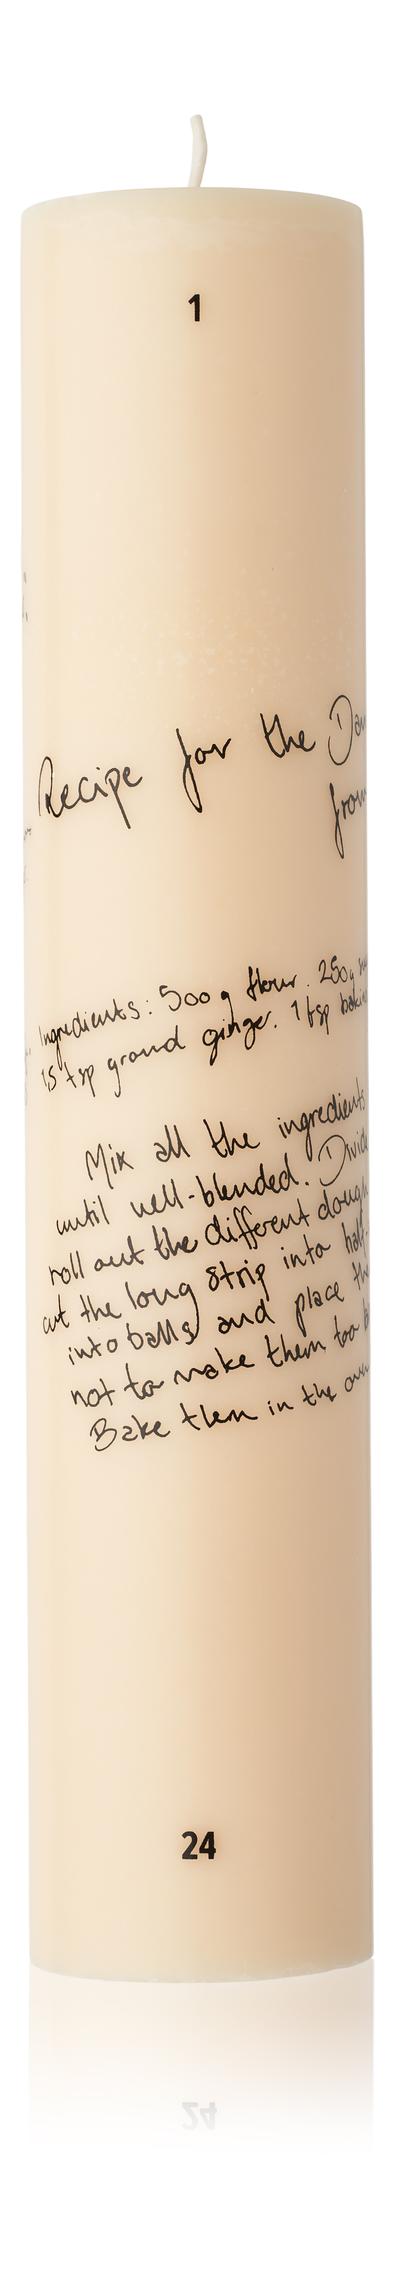 1
Recipe for the Dan
from
Ingredients: 500 g flour. 250g
1,5 tsp ground ginger. 1 tsp bakin
Mix all the ingredients
until well-blended. Divide
roll out the different dough
cut the long strip into half-
into balls and place the
not to make them too b
Bake them in the oven
24